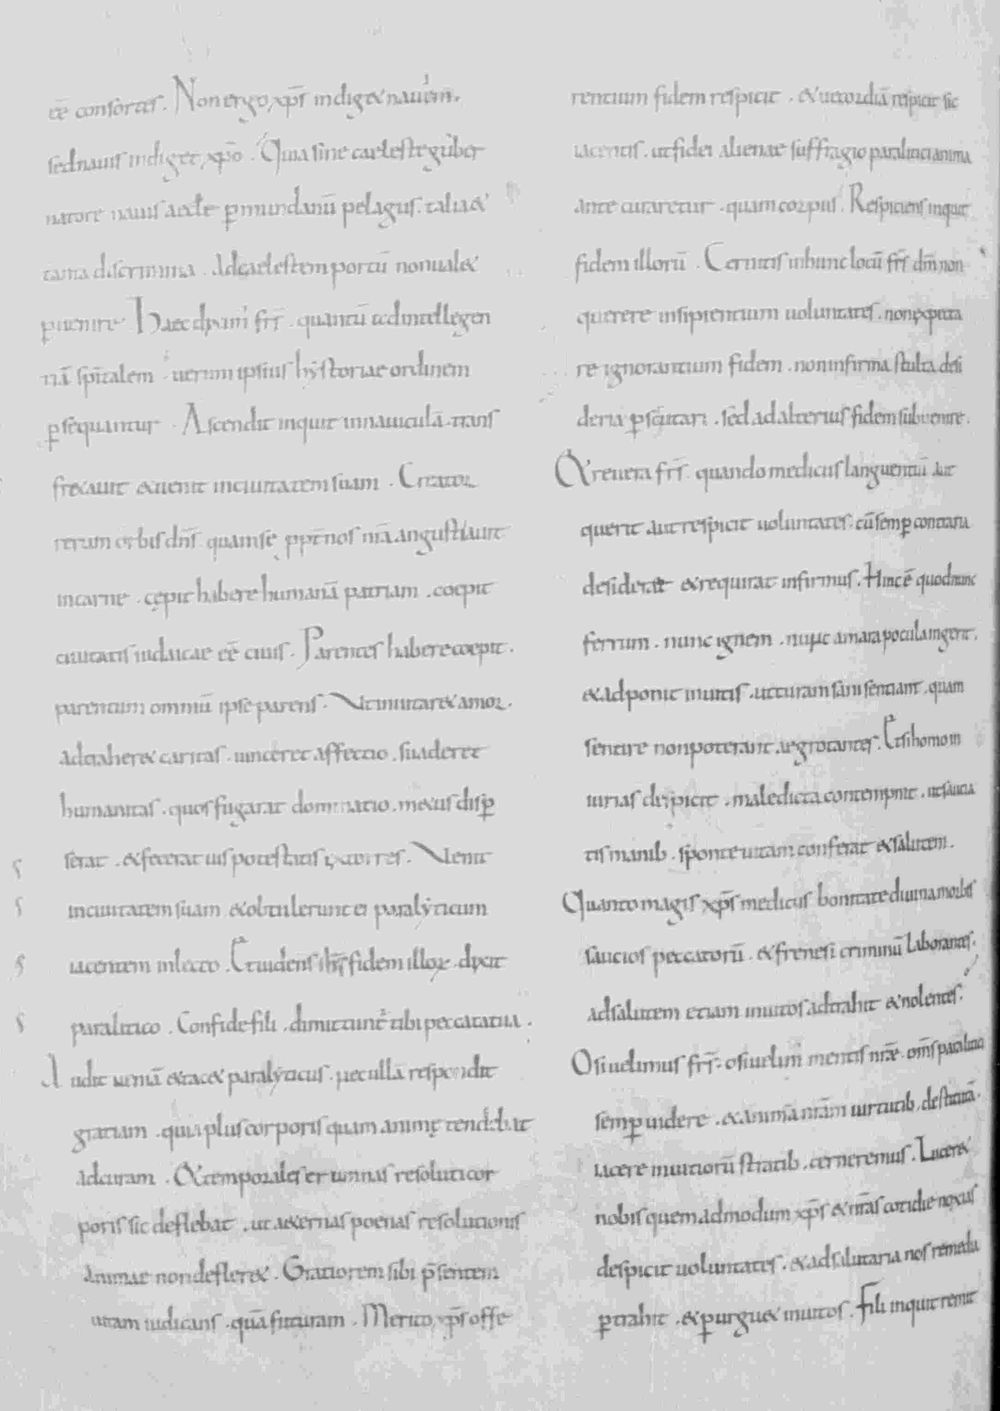 eē consortes. Non ergo xp̄s indiget navem.
sed navis indiget xp̄o. Quia sine caelesti guber
natore navis aeccle p̄ mundanū pelagus. talia &
tanta discrimina. Ad caelestem portū non ualet
puenire. Haec dixim' frs̄. quantū ad intellegen
tiā spiritalem. uerum ipsius hystoriae ordinem
p̄sequamur. Ascendit inquit in nauiculā. trans
fretauit & uenit in ciuitatem suam. Creator
rerum orbis dn̄s. quam se ppt̄ nos nr̄a angustiauit
in carne. cępit habere humanā patriam. coepit
ciuitatis iudaicae eē ciuis. Parentes habere coepit.
parentum omniū ipse parens. Vt inuitaret amor.
adtraheret caritas. uinceret affectio. suaderet
humanitas. quos fugarat dominatio. metus disp̄
serat. & fecerat uis potestatis extorres. Venit
in ciuitatem suam. & obtulerunt ei paralyticum
iacentem in lecto. Et uidens ih̄s fidem illoꝝ. dixit
paralitico. Confide fili. dimittunt̄ tibi peccata tua.
Audit ueniā & tacet paralyticus. nec ullā respondit
gratiam. quia plus corporis quam animę tendebat
ad curam. & temporales erumnas resoluti cor
poris sic deflebat. ut aeternas poenas resolutionis
animae non defleret. Gratiorem sibi p̄sentem
uitam iudicans. quā futuram. Merito xp̄s offe
rentium fidem respicit. & uecordiā respicit sic
iacentis. ut fidei alienae suffragio paralitici anima
ante curaretur. quam corpus. Respiciens inquit
fidem illorū. Cernitis in hunc locū frs̄ dn̄m non
querere insipientium uoluntates. non expecta
re ignorantium fidem. non infirma stulta desi
deria p̄scrutari. sed ad alterius fidem subuenire.
& reuera frs̄. quando medicus languentiū aut
querit aut respicit uoluntates. cū semp̄ contraria
desiderat & requirat infirmus. Hinc ē quod nunc
ferrum. nunc ignem. nunc amara pocula ingerit.
& adponit inuitis. ut curam sani sentiant. quam
sentire non poterant aegrotantes. Et si homo in
iurias despicit. maledicta contempnit. ut saucia
tis manib. sponte uitam conferat & salutem.
Quanto magis xp̄s medicus bonitate diuina morbis
saucios peccatorū. & frenesi criminū laborantes.
ad salutem etiam inuitos adtrahit & nolentes.
O si uelimus frs̄. o si uelim' mentis nr̄ae. om̄s paralisin
semp̄ uidere. & animā nr̄am uirtutib. destitutā.
iacere in uitiorū stratib. cerneremus. Luceret
nobis quemadmodum xp̄s & nr̄as cotidie noxias
despicit uoluntates. & ad salutaria nos remedia
p̄trahit. & p̄urguet inuitos. Fili inquit remit